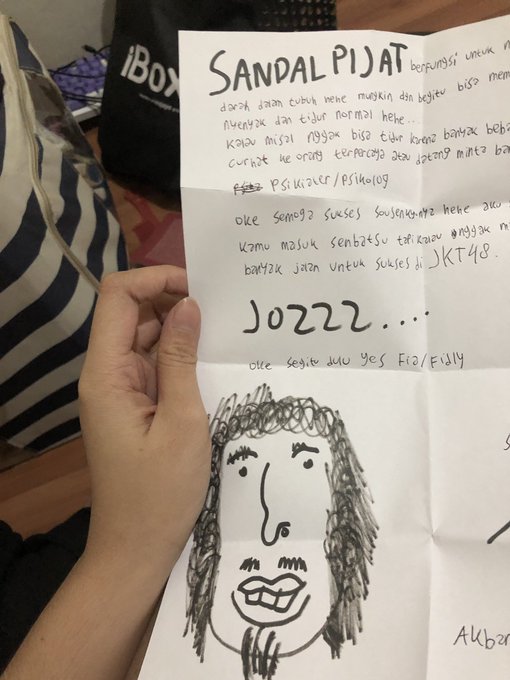 iBox
SANDAL PIJAT berfungsi untuk
darah dalam tubuh hehe mungkin dgn begitu bisa
nyenyak dan tidur normal hehe...
kalau misal nggak bisa tidur karena banyak
curhat ke orang terpercaya atau datang minta
psikiater/psikolog
oke semoga sukses sousenkyonya hehe aku
kamu masuk senbatsu tapi kalau nggak
banyak jalan untuk sukses di JKT48.
JOZZZ....
oke segitu dulu yes Fia/Fidly
Akbar